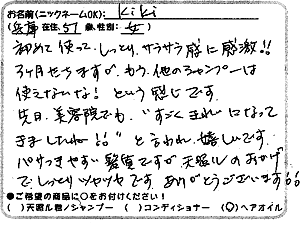 お名前(ニックネームOK): kiki
(兵庫在住、57歳、性別:女)
初めて使って、しっとり、サラサラ感に感激!!
3ヶ月たちますが、もう、他のシャンプーは
使えないな! という感じです。
先日、美容院でも、"すごくきれいになって
きましたね!!" と言われ、嬉しいです。
パサつきやすい髪質ですが天昭ルのおかげ
でしっとりツヤツヤです。ありがとうございます!!
●ご希望の商品に○をお付けください!
( )天昭ル君ノシャンプー ( )コンディショナー (○)ヘアオイル